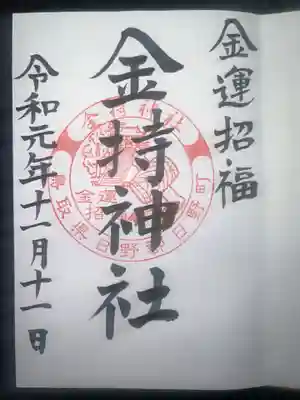 金運招福
金持神社
金持神社
鳥取県日野郡日野町
金運
招福
令和元年十一月十一日